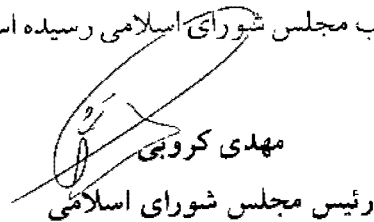 ب مجلس شورای اسلامی رسیده اس
مهدی کروبی
رئیس مجلس شورای اسلامی